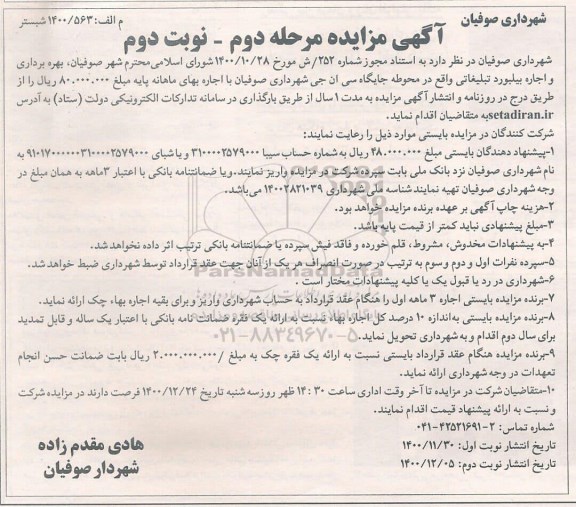 شهرداری صوفیان
م الف: ۱۴۰۰/۵۶۳ شبستر
آگهی مزایده مرحله دوم - نوبت دوم
شهرداری صوفیان در نظر دارد به استناد مجوز شماره ۲۵۲/ش مورخ ۱۴۰۰/۱۰/۲۸ شورای اسلامی محترم شهر صوفیان، بهره برداری
و اجاره بیلبورد تبلیغاتی واقع در محوطه جایگاه سی ان جی شهرداری صوفیان با اجاره بهای ماهانه پایه مبلغ ۸۰.۰۰۰.۰۰۰ ریال را از
طریق درج در روزنامه و انتشار آگهی مزایده به مدت ۱ سال از طریق بارگذاری در سامانه تدارکات الکترونیکی دولت (ستاد) به آدرس
setadiran.ir به متقاضیان اقدام نماید.
شرکت کنندگان در مزایده بایستی موارد ذیل را رعایت نمایند:
۱-پیشنهاد دهندگان بایستی مبلغ ۴۸.۰۰۰.۰۰۰ ریال به شماره حساب سیبا ۳۱۰۰۰۰۲۵۷۹۰۰۰ و یا شبای ۹۱۰۱۷۰۰۰۰۰۰۳۱۰۰۰۰۲۵۷۹۰۰۰ به
نام شهرداری صوفیان نزد بانک ملی بابت سپرده شرکت در مزایده واریز نمایند. ویا ضمانتنامه بانکی با اعتبار ۳ماهه به همان مبلغ در
وجه شهرداری صوفیان تهیه نمایند شناسه ملی شهرداری ۱۴۰۰۲۸۲۱۰۳۹ می‌باشد.
۲-هزینه چاپ آگهی بر عهده برنده مزایده خواهد بود.
۳-مبلغ پیشنهادی نباید کمتر از قیمت پایه باشد.
۴-به پیشنهادات مخدوش، مشروط، قلم خورده و فاقد فیش سپرده یا ضمانتنامه بانکی ترتیب اثر داده نخواهد شد.
۵-سپرده نفرات اول و دوم و سوم به ترتیب در صورت انصراف هر یک از آنان جهت عقد قرارداد توسط شهرداری ضبط خواهد شد.
۶-شهرداری در رد یا قبول یک یا کلیه پیشنهادات مختار است .
۷-برنده مزایده بایستی اجاره ۳ ماهه اول را هنگام عقد قرارداد به حساب شهرداری واریز و برای بقیه اجاره بهاء چک ارائه نماید.
۸-برنده مزایده بایستی به اندازه ۱۰ درصد کل اجاره بهاء نسبت به ارائه یک فقره ضمانت نامه بانکی با اعتبار یک ساله و قابل تمدید
برای سال دوم اقدام و به شهرداری تحویل نماید.
۹-برنده مزایده هنگام عقد قرارداد بایستی نسبت به ارائه یک فقره چک به مبلغ /۲.۰۰۰.۰۰۰.۰۰۰ ریال بابت ضمانت حسن انجام
تعهدات در وجه شهرداری ارائه نماید.
۱۰-متقاضیان شرکت در مزایده تا آخر وقت اداری ساعت ۳۰ : ۱۴ ظهر روز سه شنبه تاریخ ۱۴۰۰/۱۲/۲۴ فرصت دارند در مزایده شرکت
و نسبت به ارائه پیشنهاد قیمت اقدام نمایند.
شماره تماس: ۲-۴۲۵۲۱۶۹۱-۰۴۱
تاریخ انتشار نوبت اول: ۱۴۰۰/۱۱/۳۰
تاریخ انتشار نوبت دوم: ۱۴۰۰/۱۲/۰۵
هادی مقدم زاده
شهردار صوفیان
ParsNamadData
۰۲۱-۸۸۳۴۹۶۷۰-۵